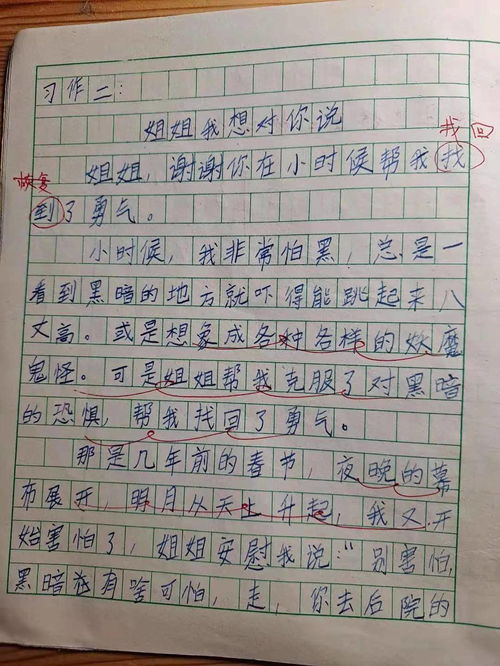 习作二:
姐姐我想对你说
找回
姐姐,谢谢你在小时候帮我找
恢复
到了勇气。
小时候,我非常怕黑,总是一
看到黑暗的地方就吓得能跳起来八
丈高。或是想象成各种各样的妖魔
鬼怪。可是姐姐帮我克服了对黑暗
的恐惧,帮我找回了勇气。
那是几年前的春节,夜晚的幕
布展开,明月从天上升起,我又开
始害怕了,姐姐安慰我说:“别害怕,
黑暗有啥可怕,走,你去后院的